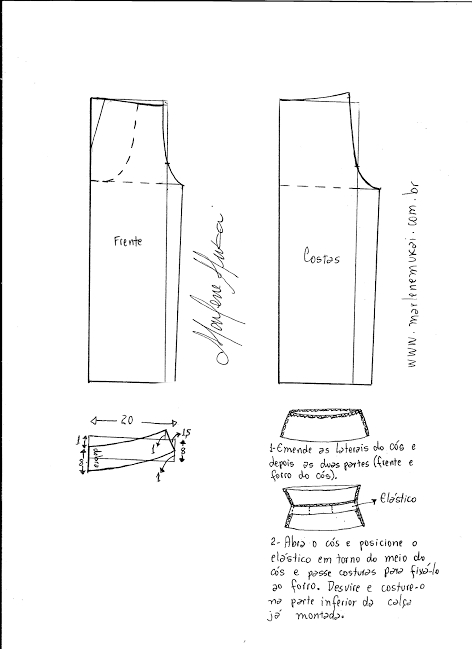 Frente
Costas
Marlene Mukai
www.marlenemukai.com.br
20
1
8
dobra
1
1,5
8
1
1-Emende as laterais do cós e
depois as duas partes (frente e
forro do cós).
Elástico
2- Abra o cós e posicione o
elástico em torno do meio do
cós e passe costuras para fixá-lo
ao forro. Desvire e costure-o
na parte inferior da calça
já montada.